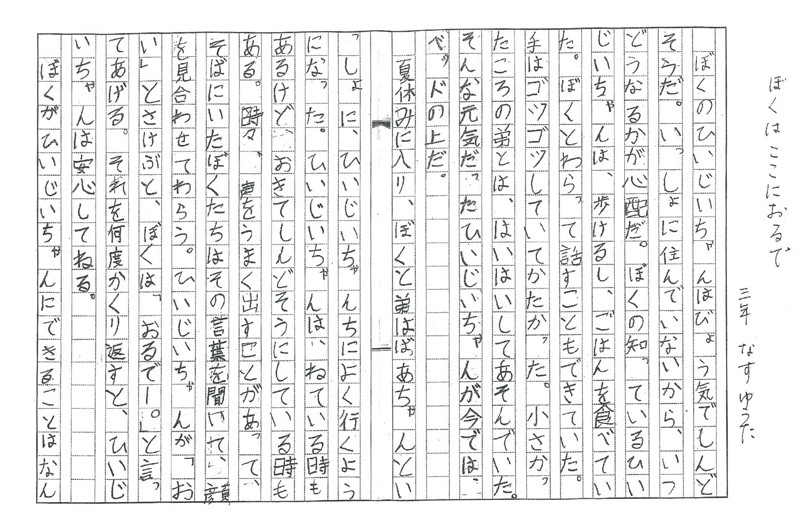 ぼくはここにおるで
三年 なすゆうた
ぼくのひいじいちゃんはびょう気でしんど
そうだ。いっしょに住んでいないから、いつ
どうなるかが心配だ。ぼくの知っているひい
じいちゃんは、歩けるし、ごはんを食べてい
た。ぼくとわらって話すこともできていた。
手はゴツゴツしていてかたかった。小さかっ
たころの弟とは、はいはいしてあそんでいた。
そんな元気だったひいじいちゃんが今では、
ベッドの上だ。
夏休みに入り、ぼくと弟はばあちゃんとい
っしょに、ひいじいちゃんちによく行くよう
になった。ひいじいちゃんは、ねている時も
あるけど、おきてしんどそうにしている時も
ある。時々、声をうまく出すことがあって、
そばにいたぼくたちはその言葉を聞いて、顔
を見合わせてわらう。ひいじいちゃんが「お
い」とさけぶと、ぼくは「おるでー。」と言っ
てあげる。それを何度かくり返すと、ひいじ
いちゃんは安心してねる。
ぼくがひいじいちゃんにできることはなん